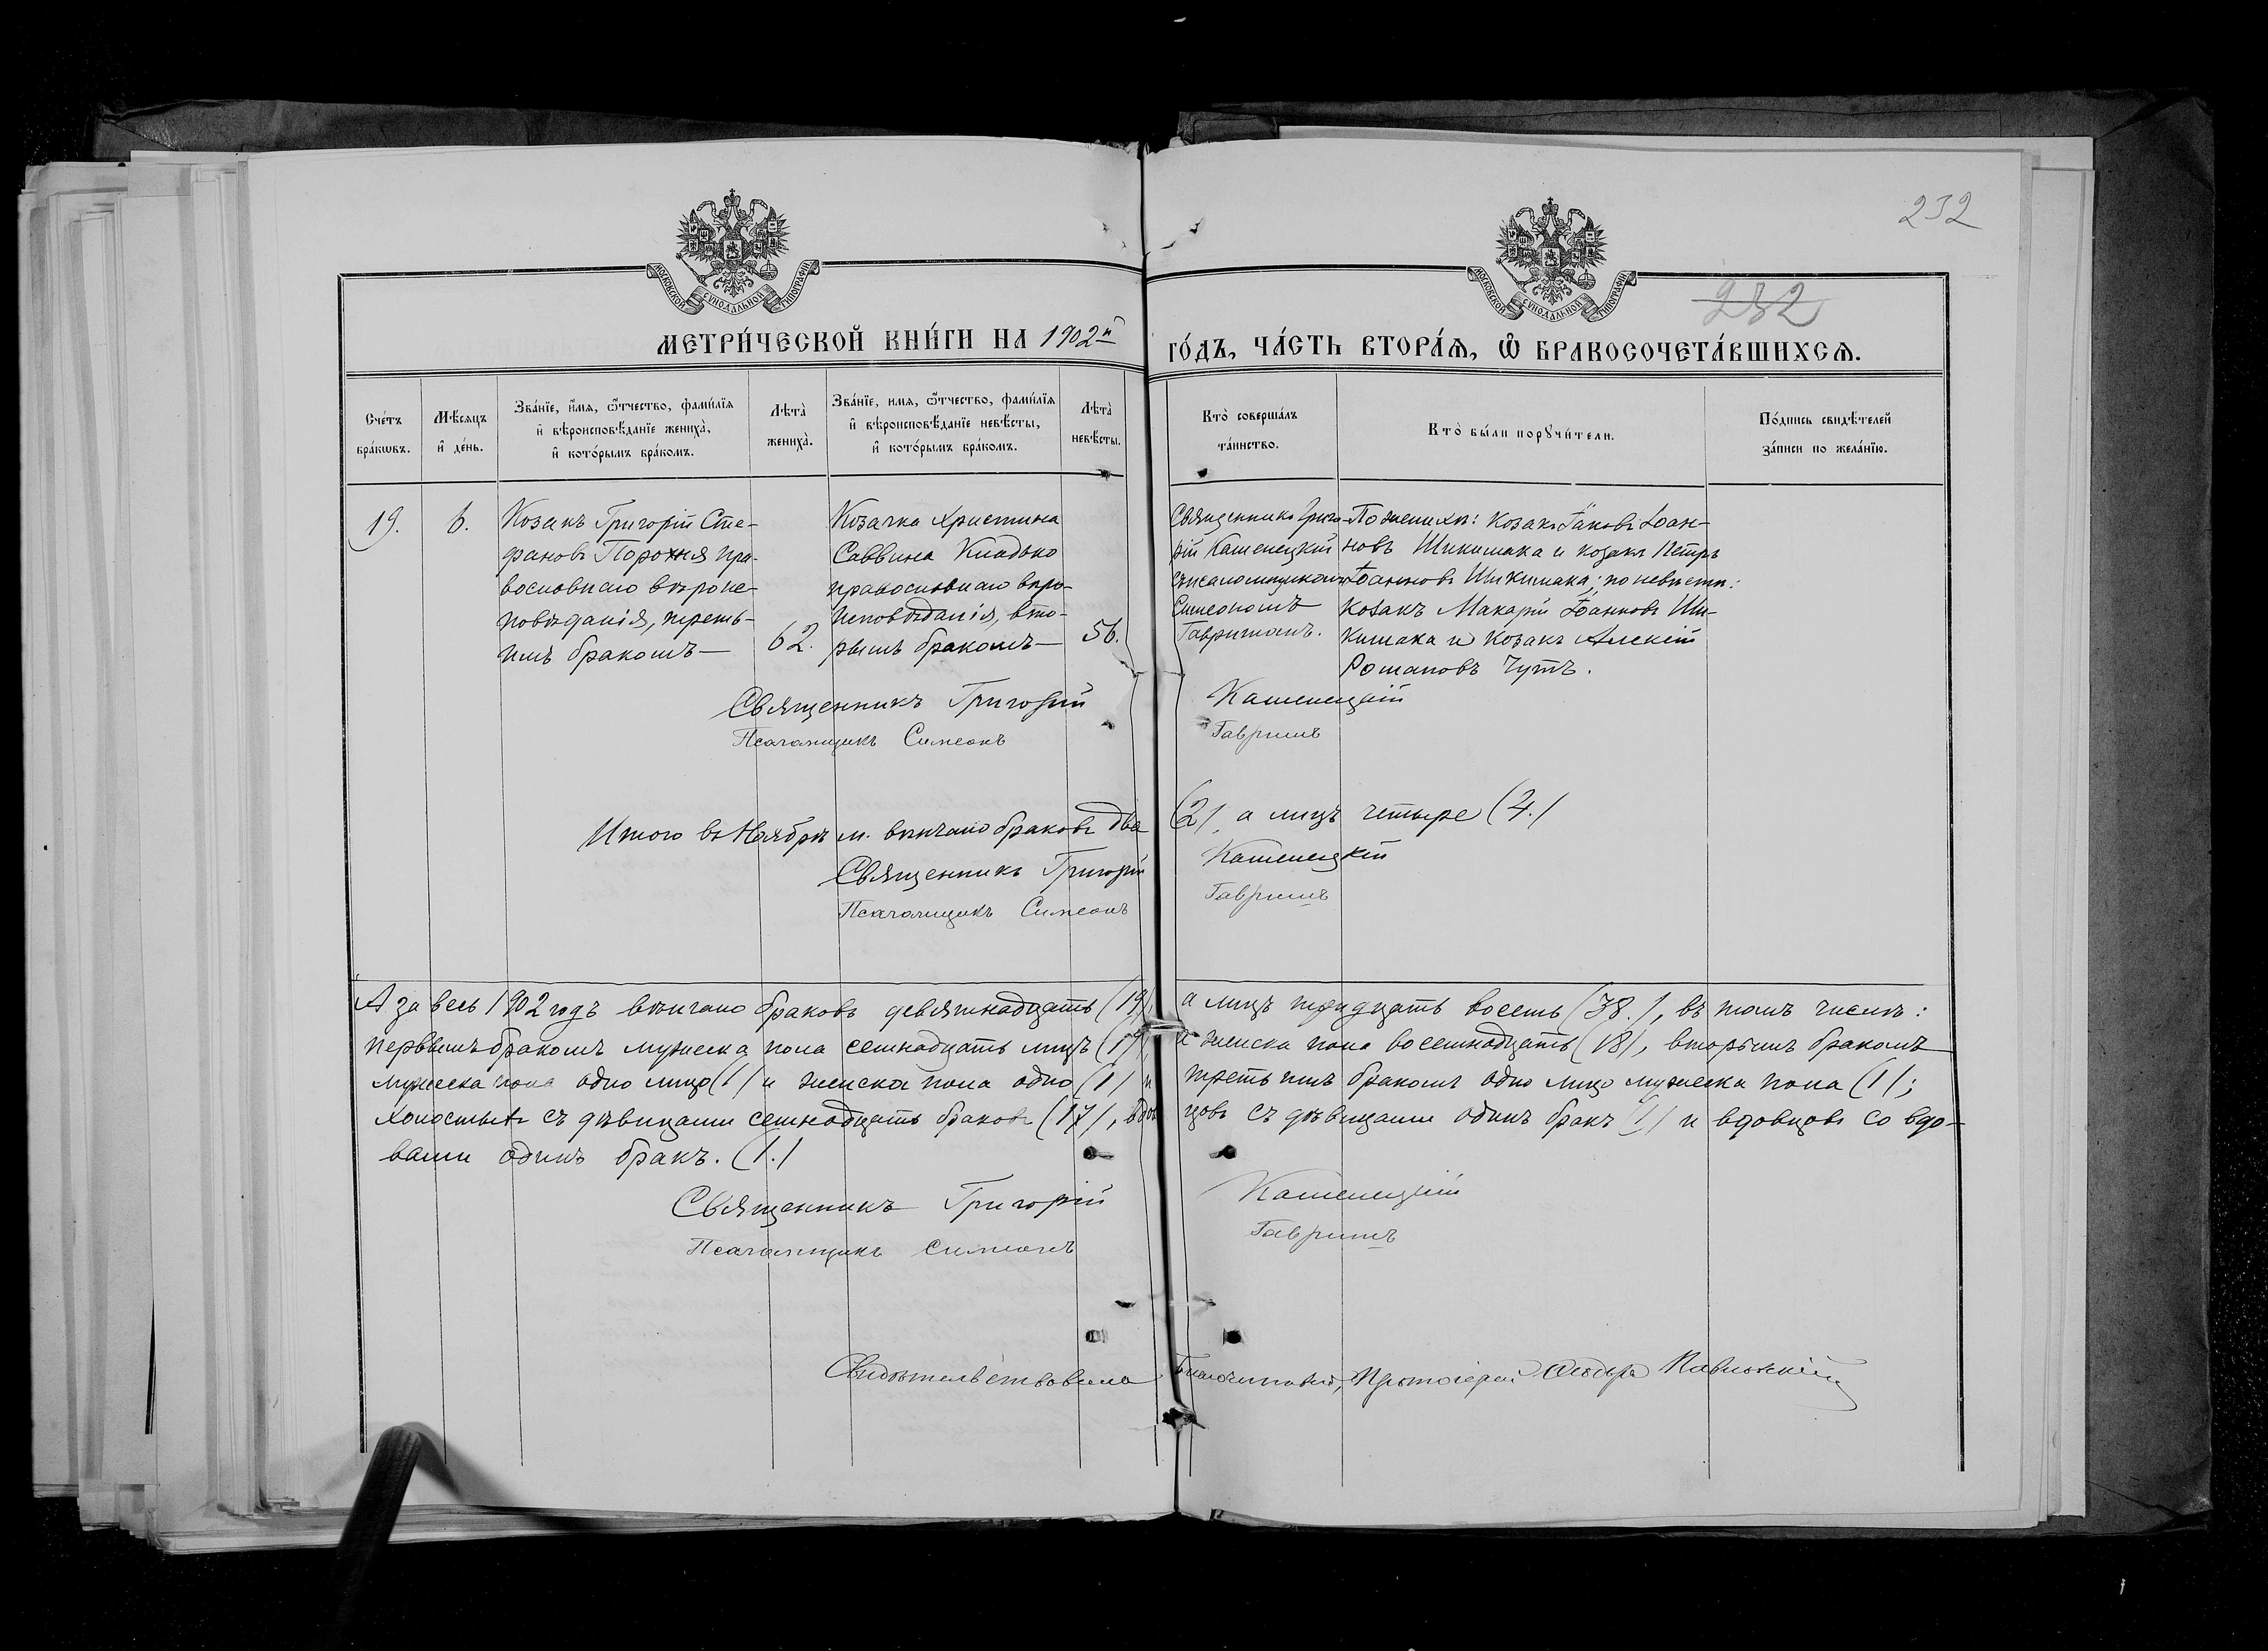 232
232
МОСКОВСКОЙ СѴНОДАЛЬНОЙ ТИПОГРАФІИ
МОСКОВСКОЙ СѴНОДАЛЬНОЙ ТИПОГРАФІИ
МЕТРИ́ЧЕСКОЙ КНИ́ГИ НА 1902й
ГО́ДЪ, ЧА́СТЬ ВТОРА́Ѧ, Ѡ҆ БРАКОСОЧЕТА́ВШИХСѦ.
Сче́тъ бра́кѡвъ.
Мѣ́сѧцъ и҆ де́нь.
Зва́нїе, и҆́мѧ, ѻ҆́тчество, фами́лїѧ и҆ вѣроисповѣ́данїе жениха̀, и҆ кото́рымъ бра́комъ.
Лѣта̀ жениха̀.
Зва́нїе, имѧ, ѻ҆́тчество, фами́лїѧ и҆ вѣроисповѣ́данїе невѣ́сты, и҆ кото́рымъ бра́комъ.
Лѣта̀ невѣ́сты.
Кто̀ соверша́лъ та́инство.
Кто̀ бы́ли порꙋчи́тели.
По́дпись свидѣ́телей за́писи по жела́нїю.
19.
6.
Козакъ Григорій Сте-
фановъ Порохня пра-
вославнаго вѣроис-
повѣданія, треть-
имъ бракомъ—
62.
Козачка Христина
Саввина Кладько
православнаго вѣро-
исповѣданія, вто-
рымъ бракомъ—
56.
Священникъ Григо-
рій Каменецкій
съ псаломщикомъ
Симеономъ
Гавришомъ.
По женихѣ: козакъ Іаковъ Іоан-
новъ Шикимака и козакъ Петръ
Іоанновъ Шикимака; по невѣстѣ:
козакъ Макарій Іоанновъ Ши-
кимака и козакъ Алексій
Романовъ Чутъ.
Священникъ Григорій Каменецкій
Псаломщикъ Симеонъ Гавришъ
Итого въ Ноябрѣ м. вѣнчано браковъ два (2), а лицъ четыре (4.)
Священникъ Григорій Каменецкій
Псаломщикъ Симеонъ Гавришъ
А за весь 1902 годъ вѣнчано браковъ девятнадцать (19), а лицъ тридцать восемь (38.), въ томъ числѣ:
первымъ бракомъ мужеска пола семнадцать лицъ (17), а женска пола восемнадцать (18), вторымъ бракомъ
мужеска пола одно лицо (1) и женска пола одно (1) и третьимъ бракомъ одно лицо мужеска пола (1);
холостыхъ съ дѣвицами семнадцать браковъ (17), вдовцовъ съ дѣвицами одинъ бракъ (1) и вдовцовъ со вдо-
вами одинъ бракъ. (1.)
Священникъ Григорій Каменецкій
Псаломщикъ Симеонъ Гавришъ
Свидѣтельствовалъ Благочинный, Протоіерей Павловскій